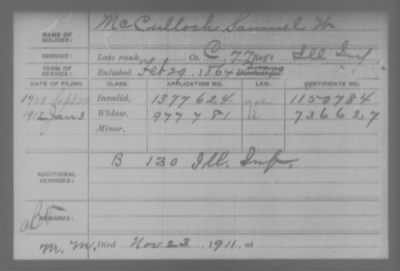 NAME OF SOLDIER: McCulloch Samuel W
SERVICE: Late rank, Co. C, 77 Reg't Ill Inf
TERM OF SERVICE: Enlisted Feb 29, 1864
DATE OF FILING. CLASS. APPLICATION NO. LAW. CERTIFICATE NO.
Invalid, 1377624 1150784
1912 Jan 3 Widow, 977781 736627
Minor,
ADDITIONAL SERVICES: B 130 Ill. Inf.
REMARKS:
M. M. Died Nov 23, 1911, at